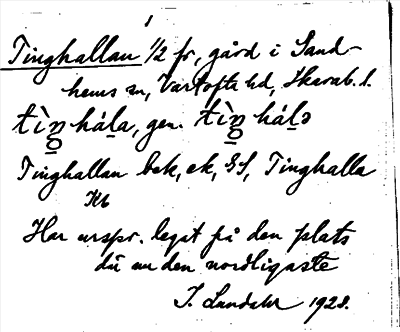 Tinghallan 1/2 fr, gård i Sand-
hems sn, Vartofta hd, Skarab. l.
tìŋ̲ håla̲, gen. tìŋ̲ hålə̲
Tinghallan bek, ek, GS, Tinghalla
Kb
Har urspr. legat på den plats
där nu den nordligaste
J. Lundahl 1928.